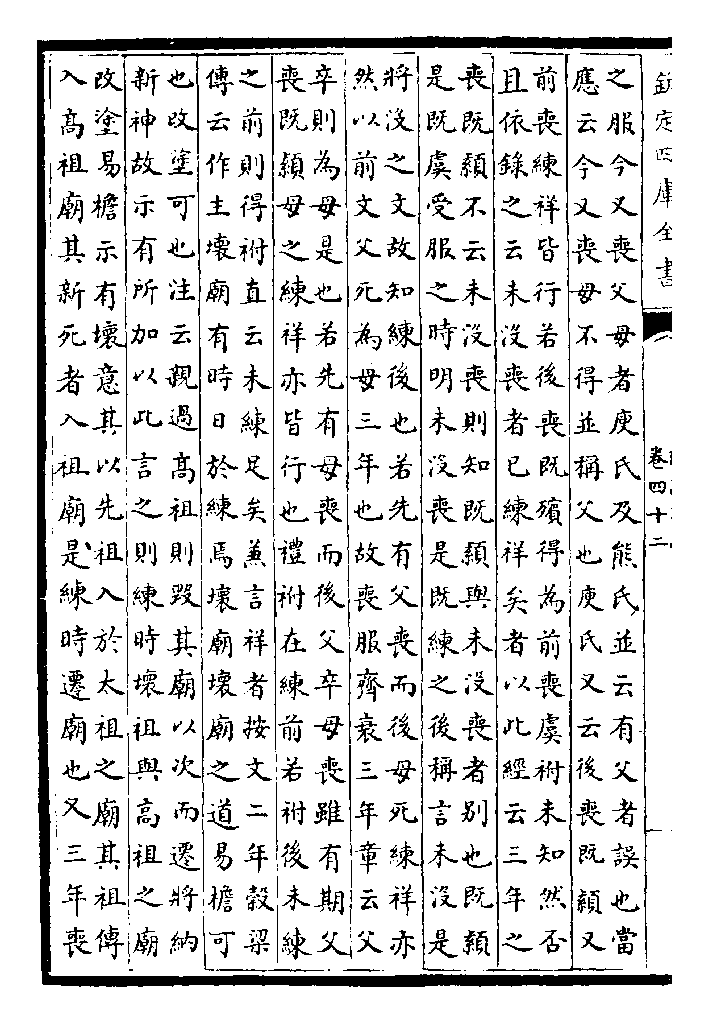 欽定四庫全書
卷四十二
之服今又喪父母者庾氏及熊氏並云有父者誤也當
應云今又喪母不得並稱父也庾氏又云後喪既顈又
前喪練祥皆行若後喪既殯得為前喪虞祔未知然否
且依錄之云未沒喪者已練祥矣者以此經云三年之
喪既顈不云未沒喪則知既顈與未沒喪者別也既顈
是既虞受服之時明未沒喪是既練之後稱言未沒是
將沒之文故知練後也若先有父喪而後母死練祥亦
然以前文父死為母三年也故喪服齊衰三年章云父
卒則為母是也若先有母喪而後父卒母喪雖有期父
喪既顈母之練祥亦皆行也禮祔在練前若祔後未練
之前則得祔直云未練足矣兼言祥者按文二年穀梁
傳云作主壞廟有時日於練焉壞廟壞廟之道易檐可
也改塗可也注云親過高祖則毀其廟以次而遷將納
新神故示有所加以此言之則練時壞祖與高祖之廟
改塗易檐示有壞意其以先祖入於太祖之廟其祖傳
入高祖廟其新死者入祖廟是練時遷廟也又三年喪